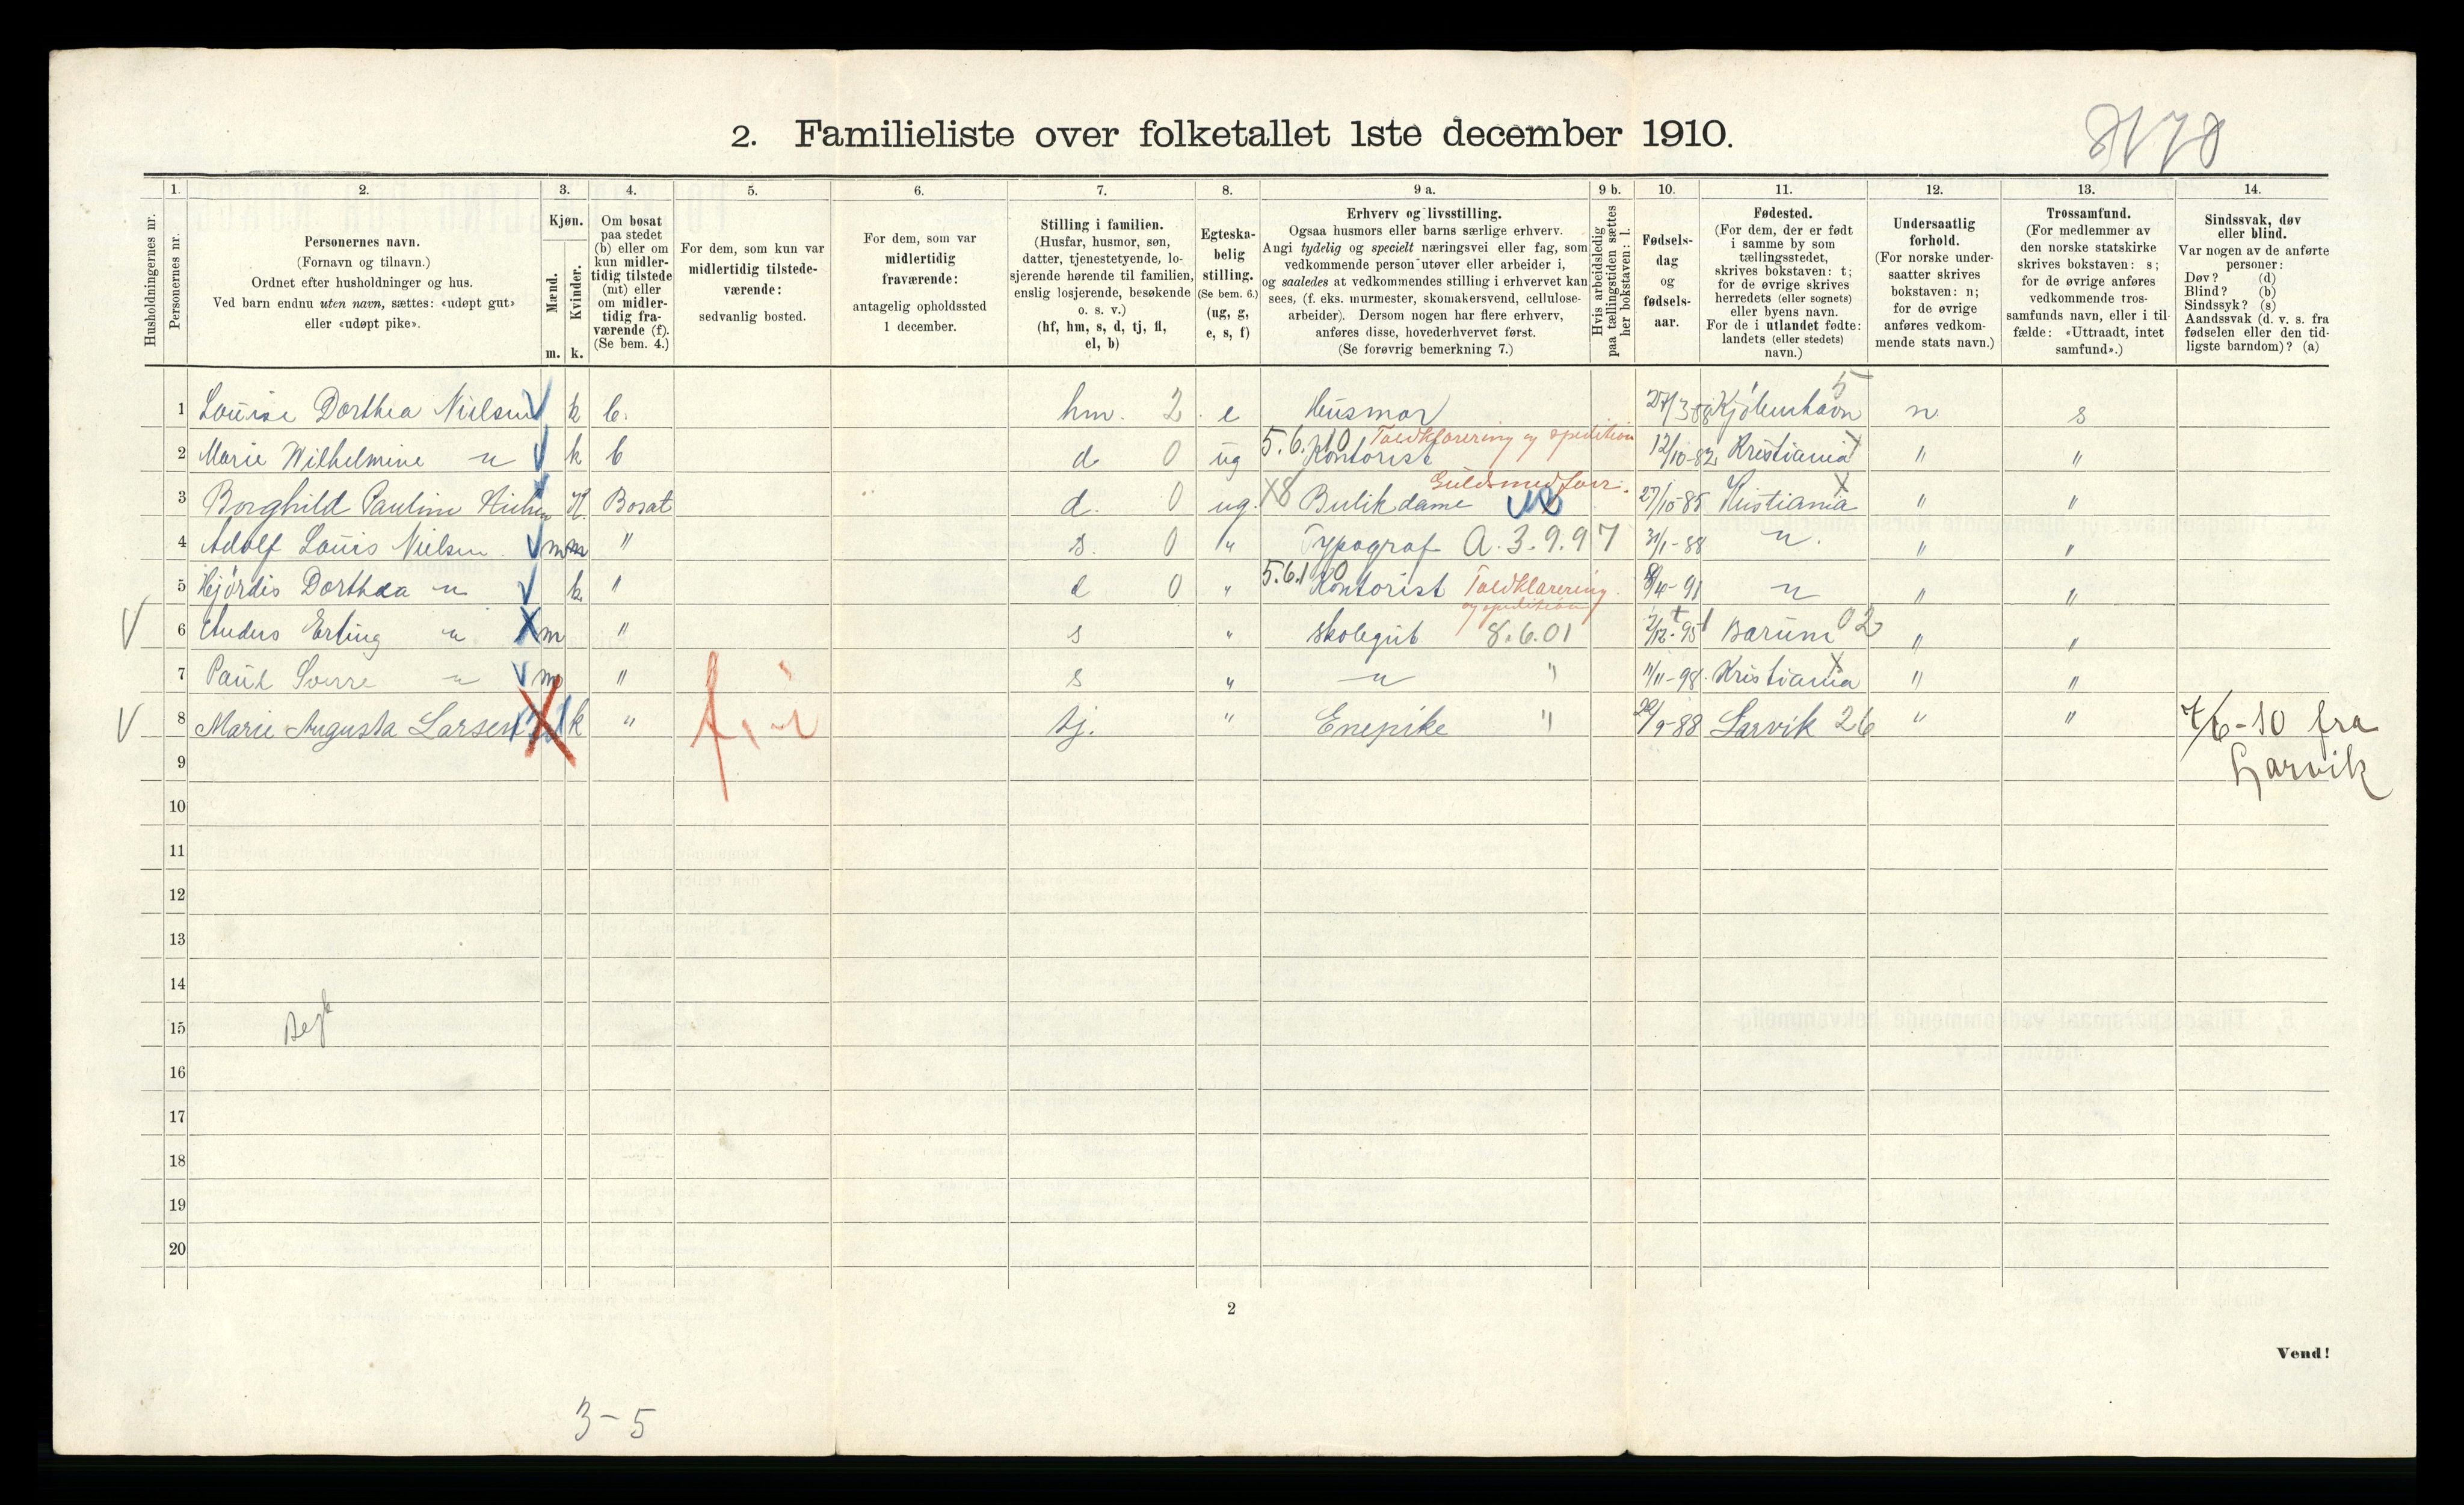 8178
2. Familieliste over folketallet 1ste december 1910.
Husholdningernes nr.
1. Personernes nr.
2. Personernes navn.
(Fornavn og tilnavn.)
Ordnet efter husholdninger og hus.
Ved barn endnu uten navn, sættes: «udøpt gut»
eller «udøpt pike».
3. Kjøn.
Mænd. m.
Kvinder. k.
4. Om bosat
paa stedet
(b) eller om
kun midler-
tidig tilstede
(mt) eller
om midler-
tidig fra-
værende (f).
(Se bem. 4.)
5. For dem, som kun var
midlertidig tilstede-
værende:
sedvanlig bosted.
6. For dem, som var
midlertidig
fraværende:
antagelig opholdssted
1 december.
7. Stilling i familien.
(Husfar, husmor, søn,
datter, tjenestetyende, lo-
sjerende hørende til familien,
enslig losjerende, besøkende
o. s. v.)
(hf, hm, s, d, tj, fl,
el, b)
8. Egteska-
belig
stilling.
(Se bem. 6.)
(ug, g,
e, s, f)
9 a. Erhverv og livsstilling.
Ogsaa husmors eller barns særlige erhverv.
Angi tydelig og specielt næringsvei eller fag, som
vedkommende person utøver eller arbeider i,
og saaledes at vedkommendes stilling i erhvervet kan
sees, (f. eks. murmester, skomakersvend, cellulose-
arbeider). Dersom nogen har flere erhverv,
anføres disse, hovederhvervet først.
(Se forøvrig bemerkning 7.)
9 b. Hvis arbeidsledig
paa tællingstiden sættes
her bokstaven: l.
10. Fødsels-
dag
og
fødsels-
aar.
11. Fødested.
(For dem, der er født
i samme by som
tællingsstedet,
skrives bokstaven: t;
for de øvrige skrives
herredets (eller sognets)
eller byens navn.
For de i utlandet fødte:
landets (eller stedets)
navn.)
12. Undersaatlig
forhold.
(For norske under-
saatter skrives
bokstaven: n;
for de øvrige
anføres vedkom-
mende stats navn.)
13. Trossamfund.
(For medlemmer av
den norske statskirke
skrives bokstaven: s;
for de øvrige anføres
vedkommende tros-
samfunds navn, eller i til-
fælde: «Uttraadt, intet
samfund».)
14. Sindssvak, døv
eller blind.
Var nogen av de anførte
personer:
Døv? (d)
Blind? (b)
Sindssyk? (s)
Aandssvak (d. v. s. fra
fødselen eller den tid-
ligste barndom)? (a)
1 Louise Dorthea Nielsen k b. hm. 2 e Husmor 27/3-58 Kjøbenhavn 5 n s
2 Marie Wilhelmine " k b d 0 ug 5.6.10 Kontorist Toldklarering og spedition 12/10-82 Kristiania " "
3 Borghild Pauline K. Bosat d. 0 ug. X8 Butikdame Guldsmedforr. 27/10-85 Kristiania " "
4 Adolf Louis Nielsen m " s. 0 " Typograf A.3.9.97 31/1-88 " " "
5 Hjördis Dorthea " k " d 0 " 5.6.10 Kontorist Toldklarering og spedition 8/4-91 " " "
6 Anders Erling " m " s " skolegut 8.6.01 2/12-95 Bærum 02 " "
7 Paul Sverre " m " s " " " 11/11-98 Kristiania " "
8 Marie Augusta Larsen k " tj. " Enepike " 28/9-88 Larvik 26 " " 7/6-10 fra
Larvik
9
10
11
12
13
14
15
16
17
18
19
20
2
Vend!
3-5